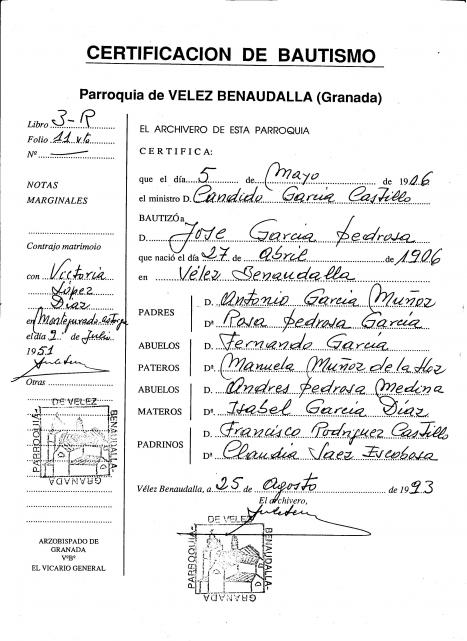 CERTIFICACION DE BAUTISMO
Parroquia de VELEZ BENAUDALLA (Granada)
Libro 3-R
Folio 11 vto
Nº
NOTAS
MARGINALES
Contrajo matrimoio
con Victoria
López
Díaz
en
el día 9 de Julio
1951
Otras
PARROQUIA DE VELEZ BENAUDALLA- GRANADA
ARZOBISPADO DE
GRANADA
VºBº
EL VICARIO GENERAL
EL ARCHIVERO DE ESTA PARROQUIA
CERTIFICA:
que el día 5 de Mayo de 1906
el ministro D. Candido Garcia Castillo
BAUTIZÓ a
D. Jose Garcia Pedrosa
que nació el día 27 de abril de 1906
en Vélez Benaudalla
PADRES D. Antonio Garcia Muñoz
Dª Rosa Pedrosa Garcia
ABUELOS D. Fernando Garcia
PATEROS Dª. Manuela Muñoz de la Hoz
ABUELOS D. Andres Pedrosa Medina
MATEROS Dª. Isabel Garcia Díaz
PADRINOS D. Francisco Rodriguez Castillo
Dª Claudia Saez Escobosa
Vélez Benaudalla, a 25 de Agosto de 1993
El archivero,
PARROQUIA DE VELEZ BENAUDALLA- GRANADA